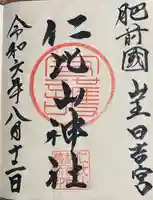 肥前國 山王日吉宮
仁比山神社
令和六年八月十二日